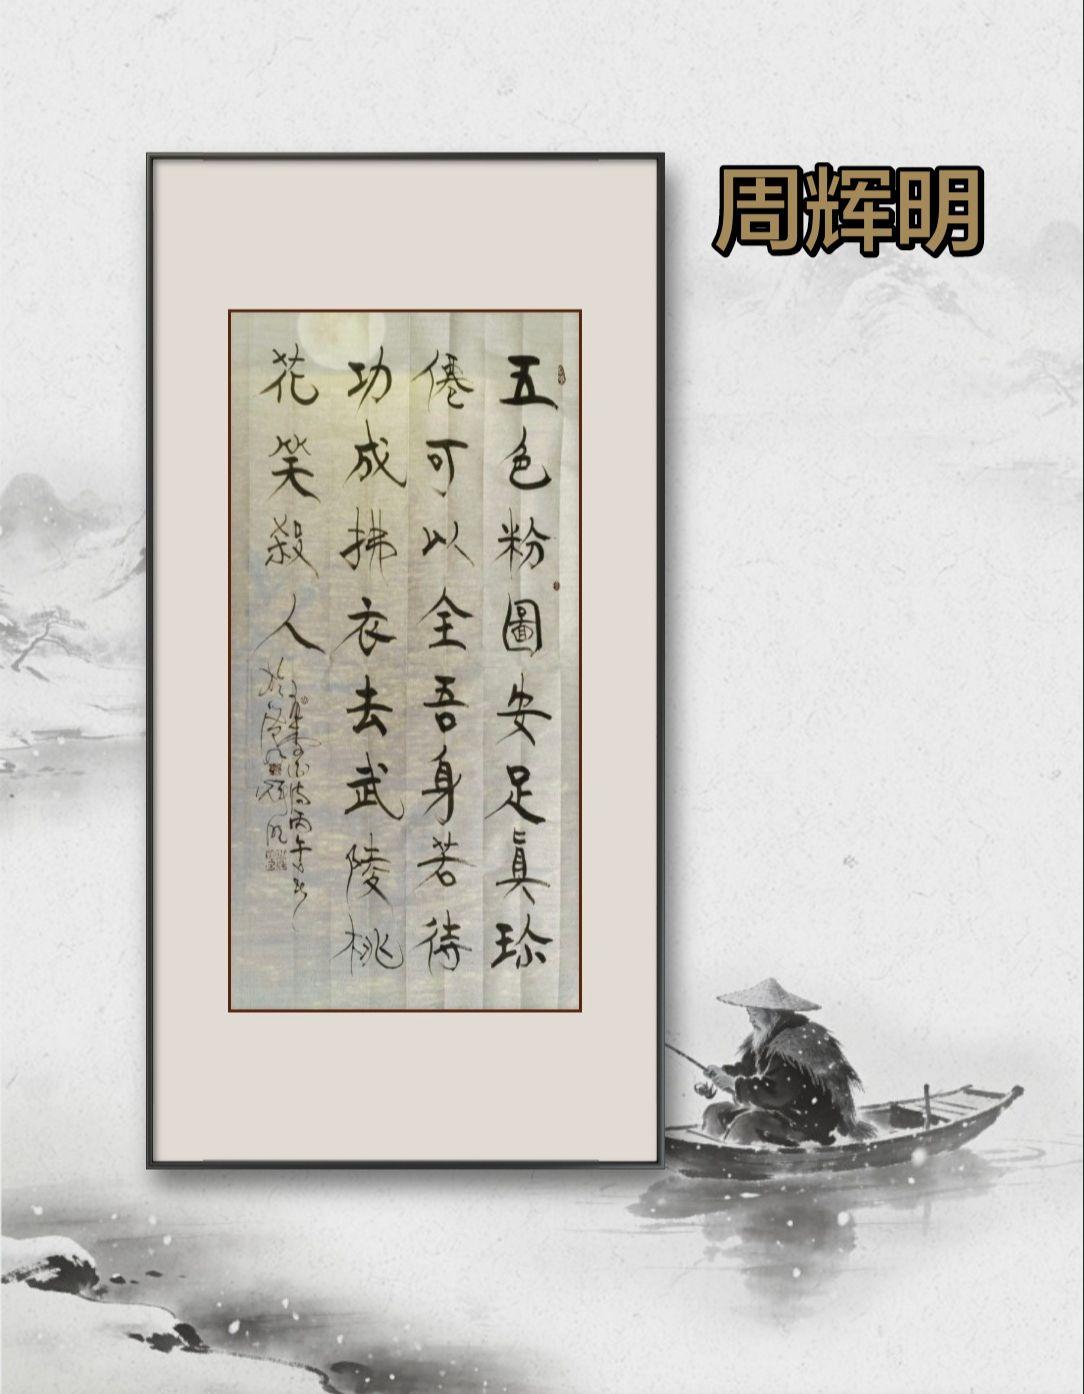 周辉明
五色粉圖安足真珎
僊可以全吾身若待
功成拂衣去武陵桃
花笑殺人